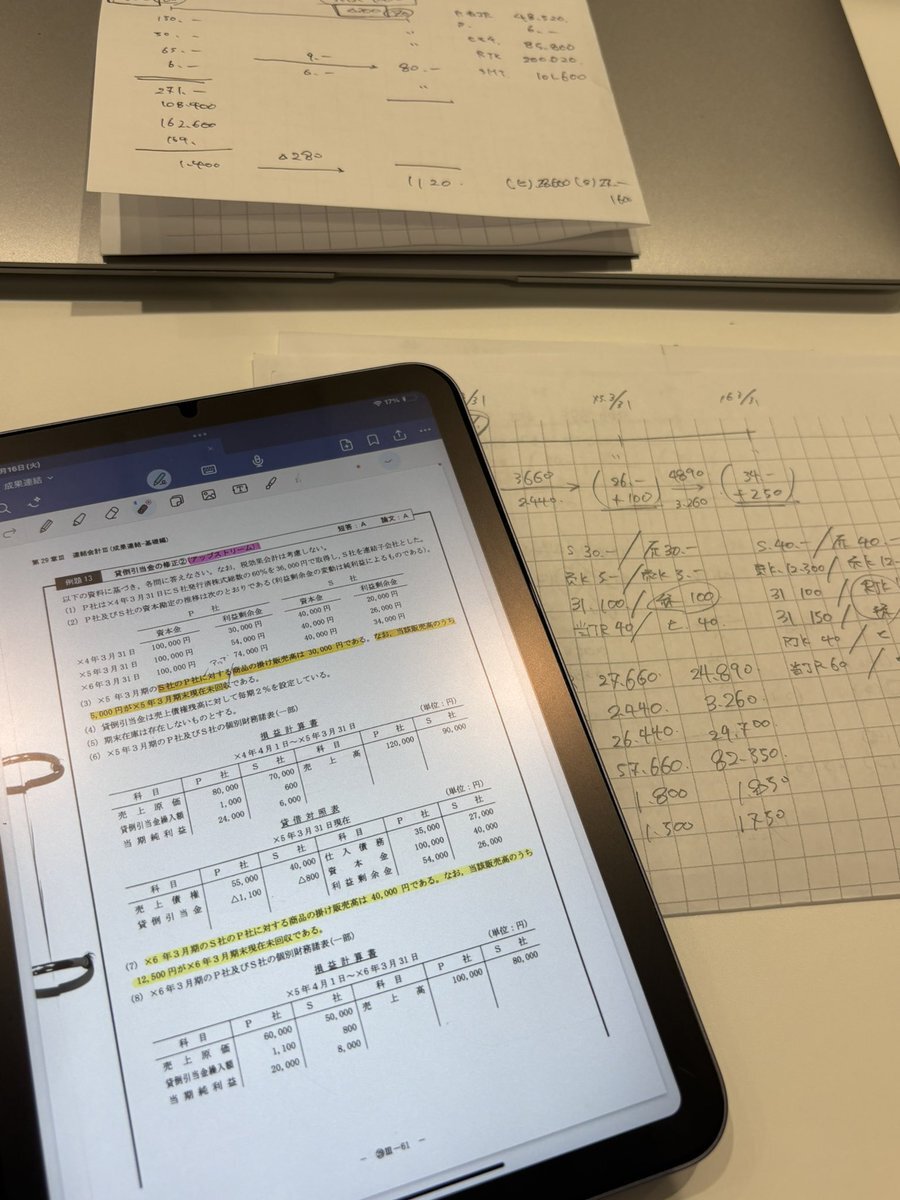 150.-
30.-
65.-
6.-
9.-
6.-
80.-
271.-
108.400
162.600
1.400
△280
1120.
48.520
6.-
85.800
200.020
101.600
3/31
×5.3/31
×6 3/31
3660
2440
(26.-
+100)
4890
3.260
(34.-
+250)
S 30.- / 30.-
5.- / 5.-
31.100 / 100
40 / 40
S.40.- / 40.-
12.500
31 100
31 150
40
60
27.660 24.890
2440. 3.260
26.440 29.700
57.660 82.350
1.800 1850
1.500 1750
17%
月16日(火)
成果連結
第29章Ⅲ 連結会計Ⅲ(成果連結-基礎編)
短答:A 論文:A
例題 13 貸倒引当金の修正②(アップストリーム)
以下の資料に基づき、各問に答えなさい。なお、税効果会計は考慮しない。
(1) P社は×4年3月31日にS社発行済株式総数の60%を36,000円で取得し、S社を連結子会社とした。
(2) P社及びS社の資本勘定の推移は次のとおりである(利益剰余金の変動は純利益によるものである)。
P 社 S 社
資本金 利益剰余金 資本金 利益剰余金
×4年3月31日 100,000円 30,000円 40,000円 20,000円
×5年3月31日 100,000円 54,000円 40,000円 26,000円
×6年3月31日 100,000円 74,000円 40,000円 34,000円
(3) ×5年3月期のS社のP社に対する商品の掛け販売高は30,000円である。なお、当該販売高のうち
5,000円が×5年3月期末現在未回収である。
(4) 貸倒引当金は売上債権残高に対して毎期2%を設定している。
(5) 期末在庫は存在しないものとする。
(6) ×5年3月期のP社及びS社の個別財務諸表(一部)
損益計算書
×4年4月1日~×5年3月31日 (単位:円)
科目 P 社 S 社 科目 P 社 S 社
売上原価 80,000 70,000 売上高 120,000 90,000
貸倒引当金繰入額 1,000 600
当期純利益 24,000 6,000
貸借対照表
×5年3月31日現在 (単位:円)
科目 P 社 S 社 科目 P 社 S 社
売上債権 55,000 40,000 仕入債務 35,000 27,000
貸倒引当金 △1,100 △800 資本金 100,000 40,000
利益剰余金 54,000 26,000
(7) ×6年3月期のS社のP社に対する商品の掛け販売高は40,000円である。なお、当該販売高のうち
12,500円が×6年3月期末現在未回収である。
(8) ×6年3月期のP社及びS社の個別財務諸表(一部)
損益計算書
×5年4月1日~×6年3月31日 (単位:円)
科目 P 社 S 社 科目 P 社 S 社
売上原価 60,000 50,000 売上高 100,000 80,000
貸倒引当金繰入額 1,100 800
当期純利益 20,000 8,000
- ㉙Ⅲ-61 -